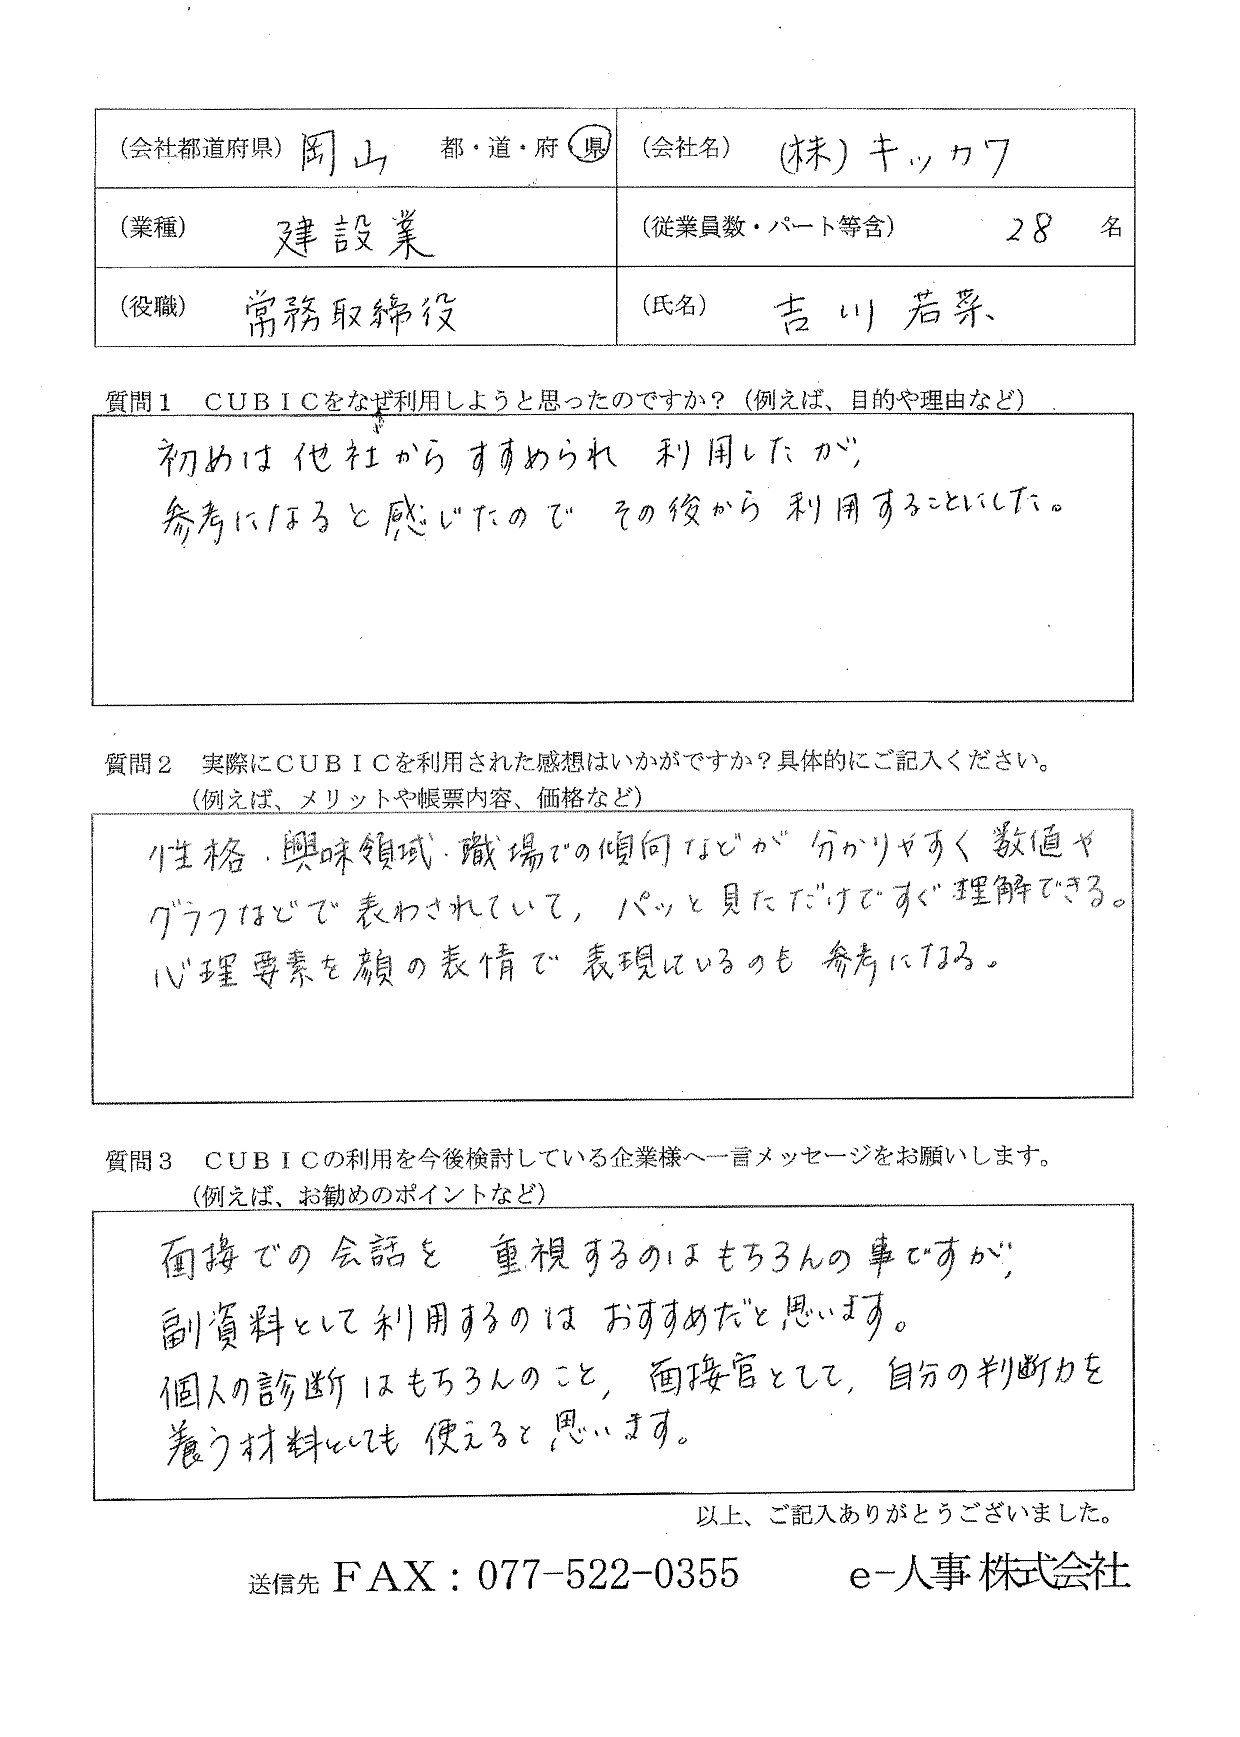 （会社都道府県） 岡山 都・道・府・県 （会社名） (株)キッカワ
（業種） 建設業 （従業員数・パート等含） 28 名
（役職） 常務取締役 （氏名） 吉川 若菜
質問１　ＣＵＢＩＣをなぜ利用しようと思ったのですか？（例えば、目的や理由など）
初めは他社からすすめられ 利用したが、
参考になると感じたので その後から 利用することにした。
質問２　実際にＣＵＢＩＣを利用された感想はいかがですか？具体的にご記入ください。
（例えば、メリットや帳票内容、価格など）
性格・興味領域・職場での傾向などが 分かりやすく 数値や
グラフなどで 表わされていて、パッと見ただけですぐ理解できる。
心理要素を顔の表情で 表現しているのも 参考になる。
質問３　ＣＵＢＩＣの利用を今後検討している企業様へ一言メッセージをお願いします。
（例えば、お勧めのポイントなど）
面接での会話を 重視するのはもちろんの事ですが、
副資料として利用するのは おすすめだと思います。
個人の診断はもちろんのこと、面接官として、自分の判断力を
養う材料としても 使えると思います。
以上、ご記入ありがとうございました。
送信先 ＦＡＸ：077-522-0355 e-人事 株式会社